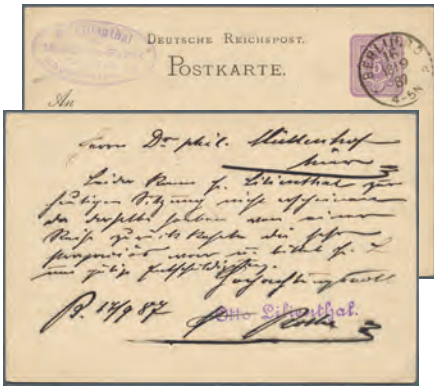 Lilienthal
DEUTSCHE REICHSPOST.
POSTKARTE.
An
BERLIN
87
4-5N
Herrn Dr. phil. Müllenhof
hier
Leider kann H. Lilienthal zur
heutigen Sitzung nicht erscheinen
da derselbe soeben von einer
Reise zurückkehrte die sehr
und bittet H. L
um gütige Entschuldigung.
Hochachtungsvoll
B. 17/9 87
Otto Lilienthal.